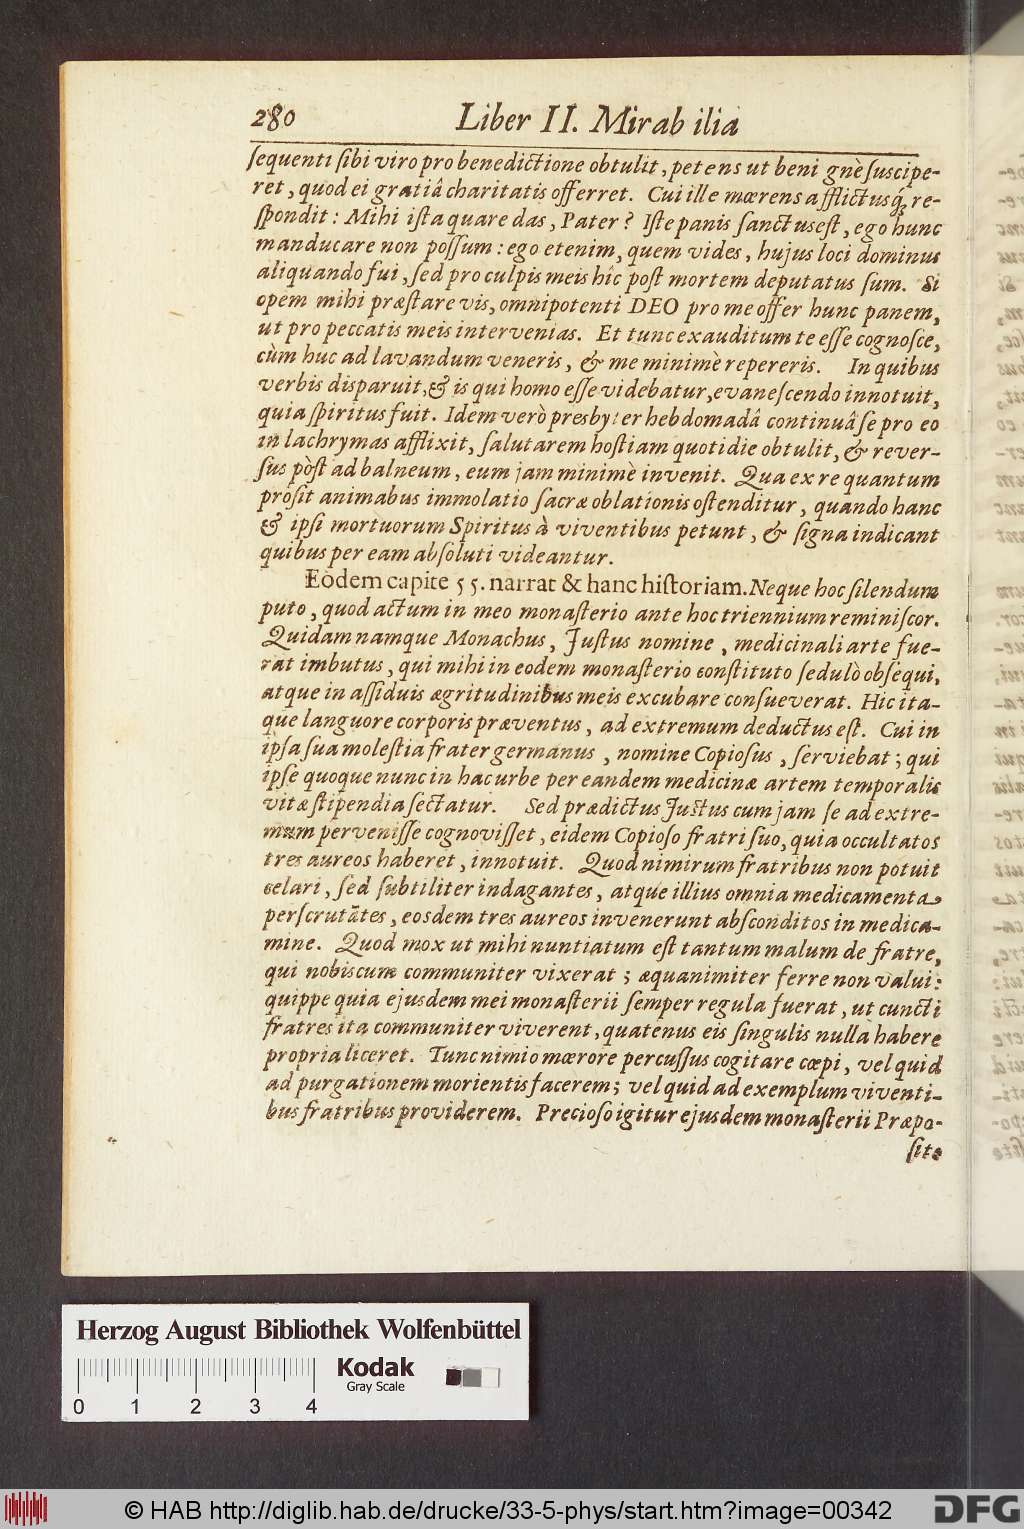 280 Liber II. Mirabilia
ſequenti ſibi viro pro benedictione obtulit, petens ut benignè ſuscipe-
ret, quod ei gratiâ charitatis offerret. Cui ille mœrens afflictusq́, re-
ſpondit: Mihi iſta quare das, Pater? Iſte panis ſanctus eſt, ego hunc
manducare non poſſum: ego etenim, quem vides, hujus loci dominus
aliquando fui, ſed pro culpis meis hîc poſt mortem deputatus ſum. Si
opem mihi præſtare vis, omnipotenti DEO pro me offer hunc panem,
ut pro peccatis meis intervenias. Et tunc exauditum te eſſe cognoſce,
cùm huc ad lavandum veneris, & me minimè repereris. In quibus
verbis disparuit, & is qui homo eſſe videbatur, evaneſcendo innotuit,
quia ſpiritus fuit. Idem verò presbyter hebdomadâ continuâ ſe pro eo
in lachrymas afflixit, ſalutarem hoſtiam quotidie obtulit, & rever-
ſus pòſt ad balneum, eum jam minimè invenit. Qua ex re quantum
proſit animabus immolatio ſacræ oblationis oſtenditur, quando hanc
& ipſi mortuorum Spiritus à viventibus petunt, & ſigna indicant
quibus per eam abſoluti videantur.
Eodem capite 55. narrat & hanc hiſtoriam. Neque hoc ſilendum
puto, quod actum in meo monaſterio ante hoc triennium reminiſcor.
Quidam namque Monachus, Juſtus nomine, medicinali arte fue-
rat imbutus, qui mihi in eodem monaſterio conſtituto ſedulò obſequi,
atque in aſſiduis ægritudinibus meis excubare conſueverat. Hic ita-
que languore corporis præventus, ad extremum deductus eſt. Cui in
ipſa ſua moleſtia frater germanus, nomine Copioſus, ſerviebat; qui
ipſe quoque nunc in hac urbe per eandem medicinæ artem temporalis
vitæ ſtipendia ſectatur. Sed prædictus Juſtus cum jam ſe ad extre-
mum perveniſſe cognoviſſet, eidem Copioſo fratri ſuo, quia occultatos
tres aureos haberet, innotuit. Quod nimirum fratribus non potuit
celari, ſed ſubtiliter indagantes, atque illius omnia medicamenta
perſcrutātes, eosdem tres aureos invenerunt abſconditos in medica-
mine. Quod mox ut mihi nuntiatum eſt tantum malum de fratre,
qui nobiscum communiter vixerat; æquanimiter ferre non valui:
quippe quia ejusdem mei monaſterii ſemper regula fuerat, ut cuncti
fratres ita communiter viverent, quatenus eis ſingulis nulla habere
propria liceret. Tunc nimio mœrore percuſſus cogitare cœpi, vel quid
ad purgationem morientis facerem; vel quid ad exemplum viventi-
bus fratribus providerem. Precioſo igitur ejusdem monaſterii Præpo-
ſito
Herzog August Bibliothek Wolfenbüttel
Kodak
Gray Scale
0 1 2 3 4
© HAB http://diglib.hab.de/drucke/33-5-phys/start.htm?image=00342
DFG